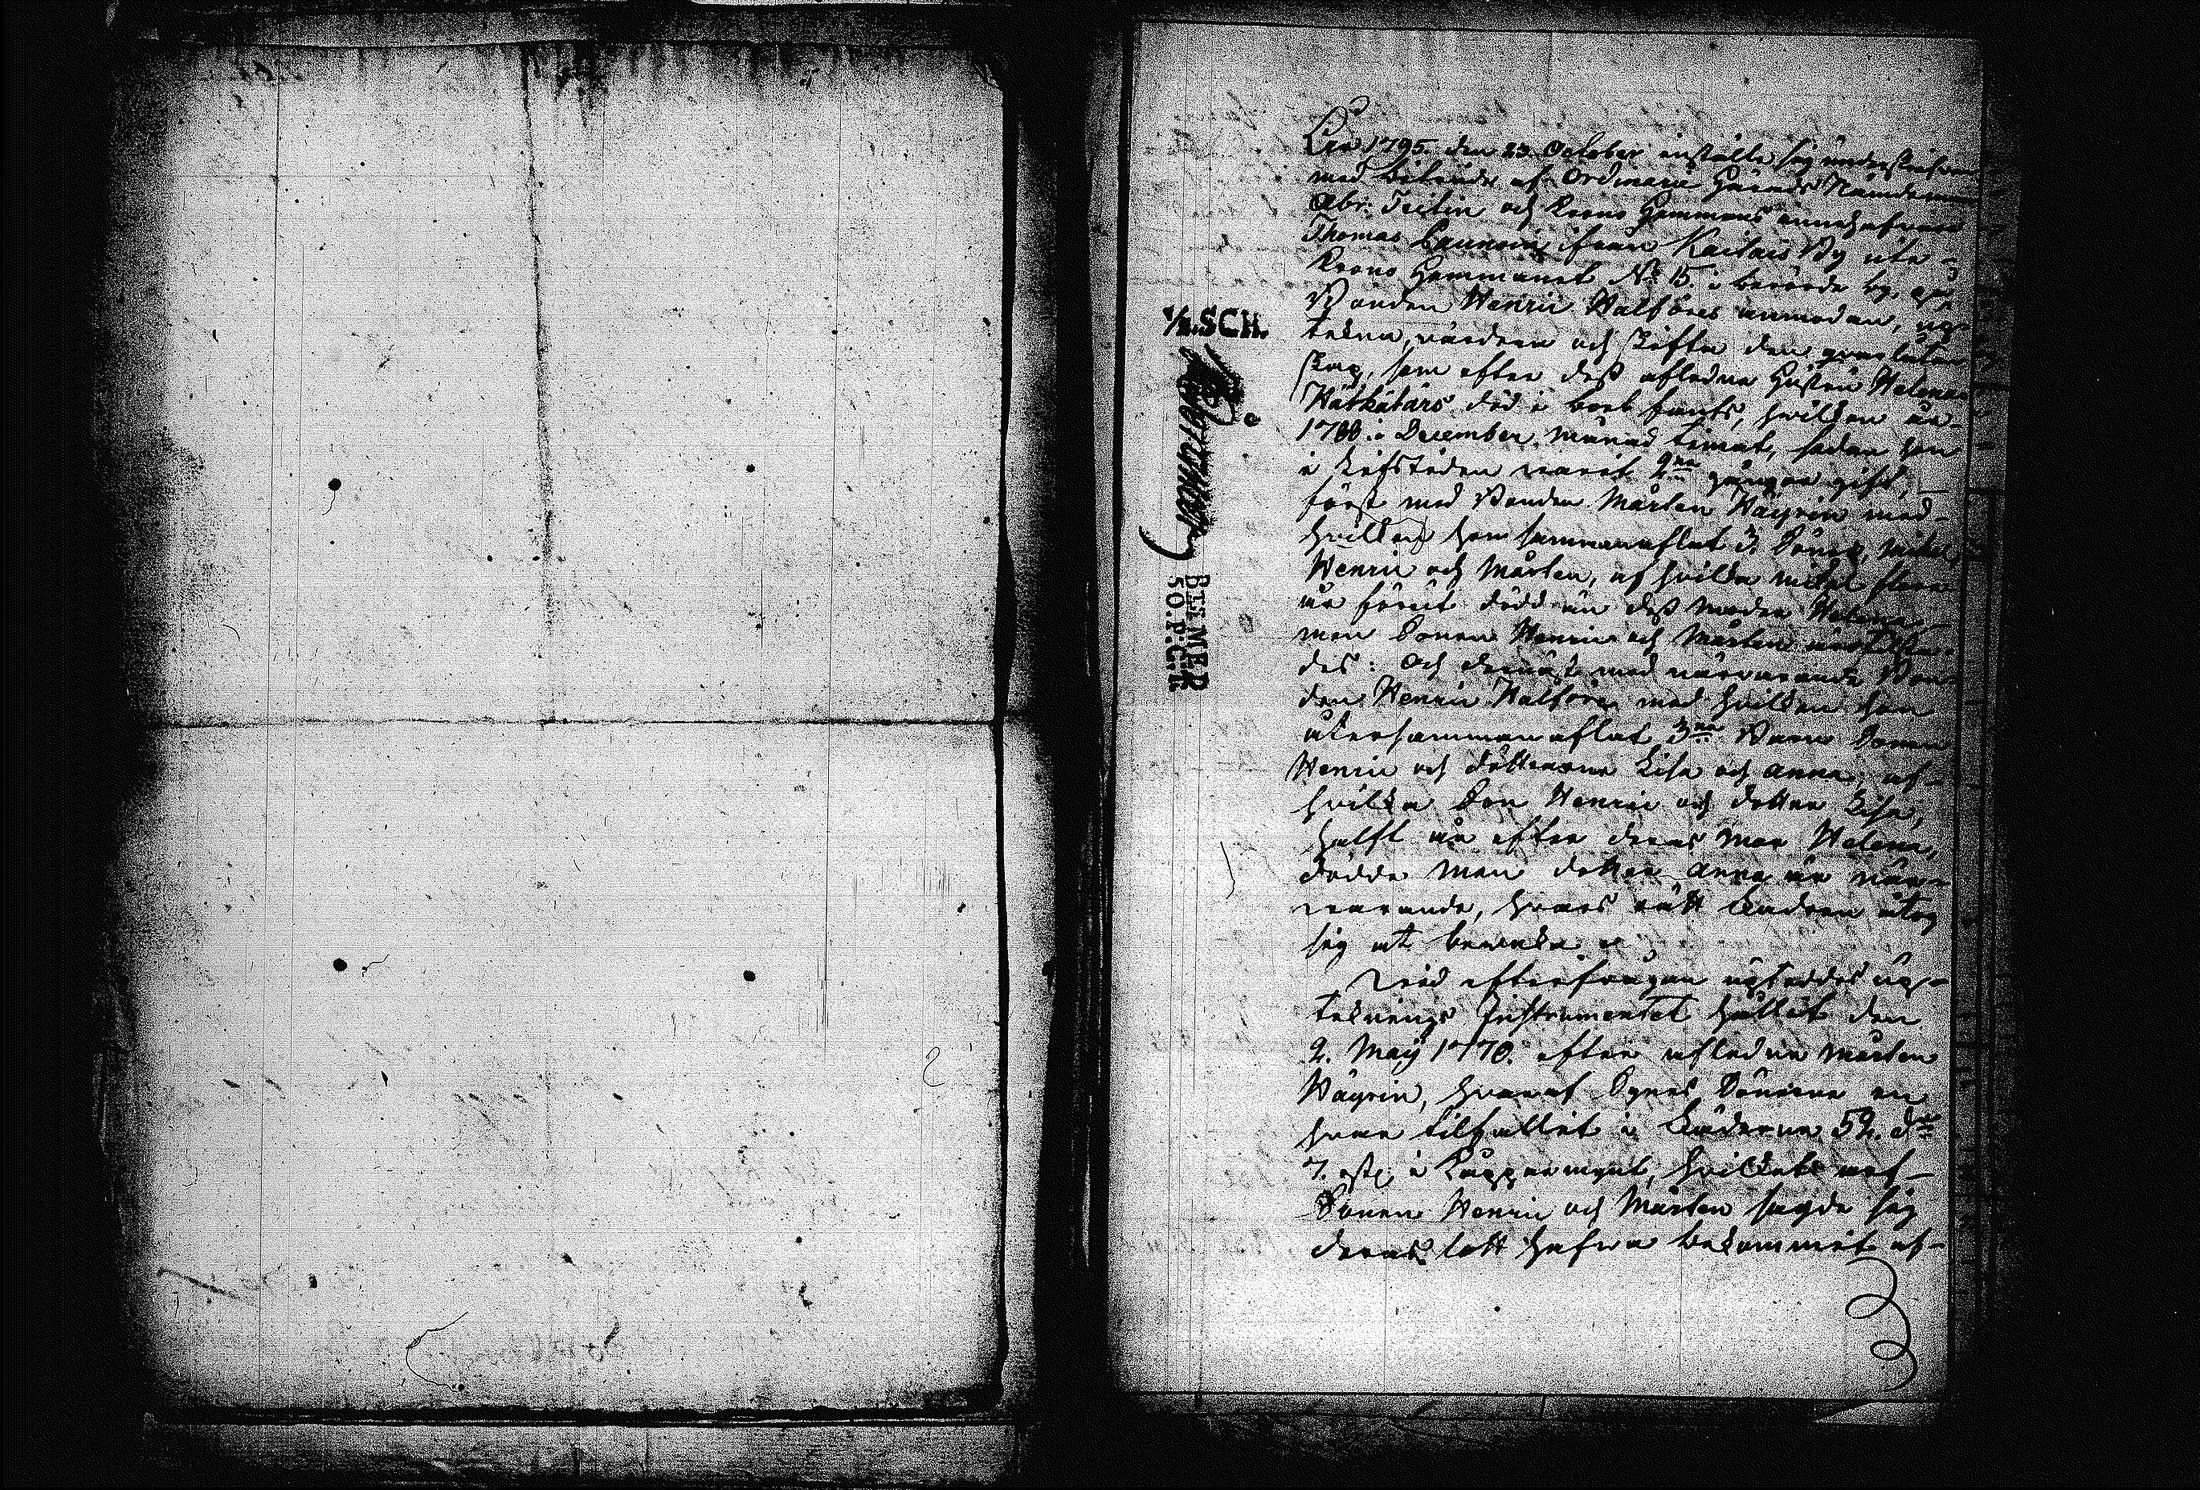 Åhr 1795 den 23 October instälte sig undertecknad
med biträde af Ordinarie Härads Nämndeman
Abr: Teitin och Krono Hemmans innehafvare
Thomas Paunoin ifrån Kaitais By ute
Krono Hemmanet No 15. i berörde by, på
Bonden Henric Halföres anmodan, up-
tekna, värdera och skifta den qvarlåten
skap, som efter dess aflidna Hustru Helena
Kätkätärs död i boet fants, hvilken år
1788 i December månad timat, sedan hon
i Lifstiden varit 2ne gånger gift,
först med Bonden Mårten Wäyrin med
hvilken hon sammanaflat 3 Söner, Michel
Henric och Mårten, af hvilka Michel flera
år förut dödd än dess Moder Helena
men Sonen Henric och Mårten
des: Och dernäst med närvarande Bon-
den Henric Halföre, med hvilken hon
åter sammanaflat 3ne Barn Sonen
Henric och döttrarne Lisa och Anna, af
hvilka Son Henric och dotter Lisa,
halft år efter deras Mor Helena,
dödde men dotter Anna är när-
varande, hvars rätt Fadren åtog
sig at bevaka.
Vid efterfrågan upteddes up-
teknings Instrumentet hållit den
2. May 1770. efter aflidne Mårten
Wäyrin, hvaraf Synes Sönerne en
hvar tilfallit i 52. dr
7. i Kopparmynt, hvilket
Sönen Henric och Mårten sagde sig
deras lott hafva bekommit af
1/2.SCH.
BTLMER
50.P:C:R